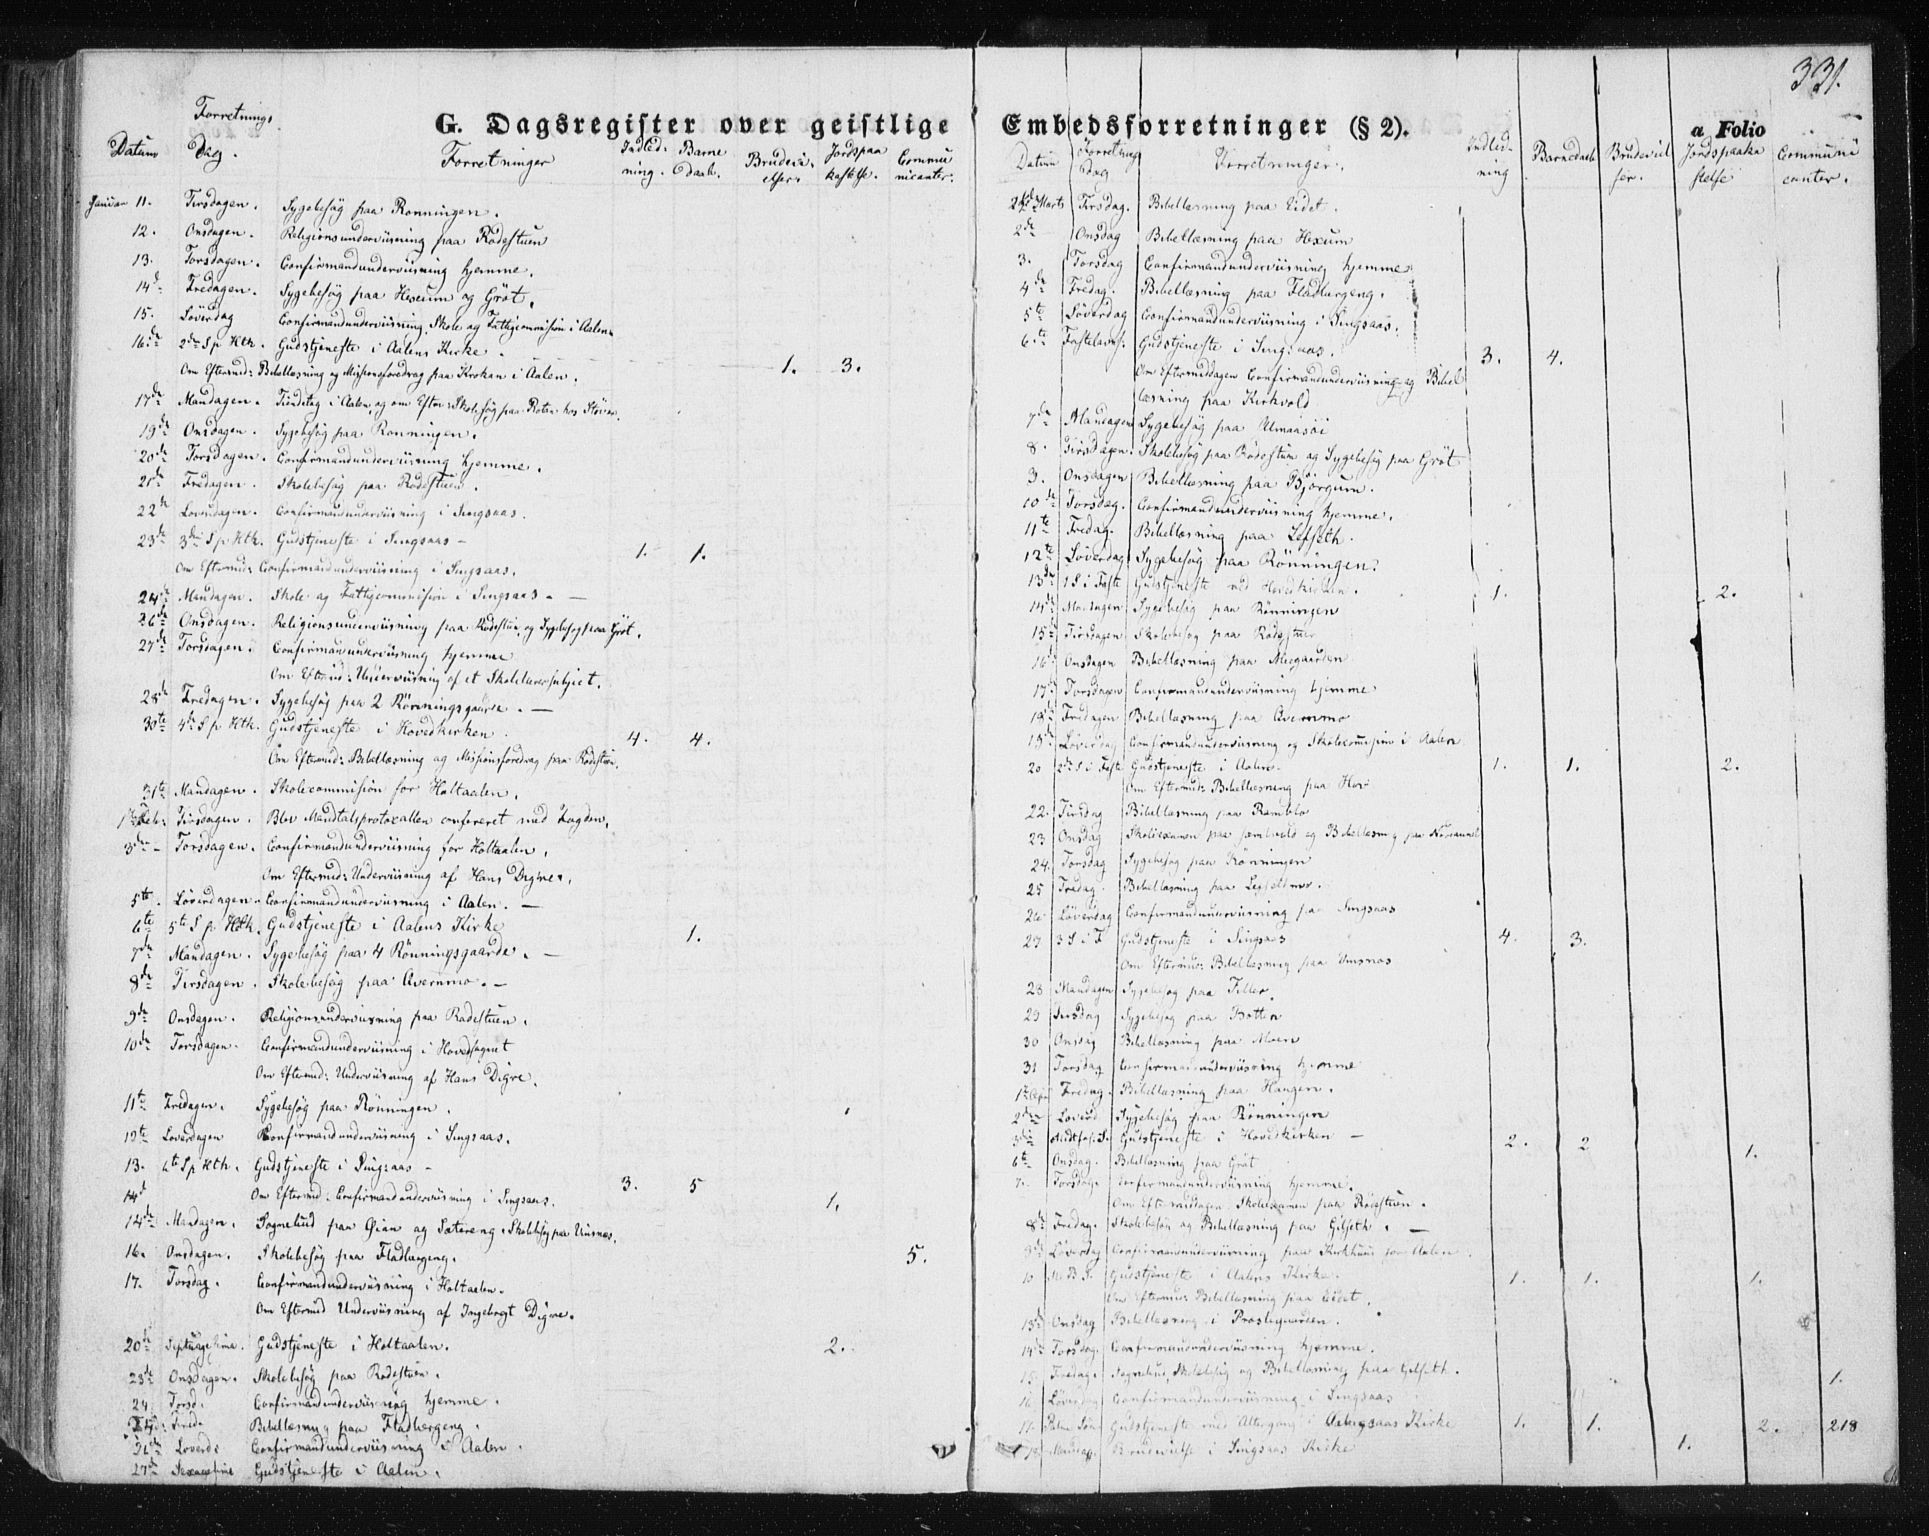 331.
G. Dagsregister over geistlige Embedsforretninger (§ 2).
a Folio
Datum Forretnings Dag. Forretninger Indled: ning. Barne daab. Brudevi elser. Jordspaa kastelse. Commu nicanter.
Januar 11. Tirsdagen. Sygebesög paa Rönningen.
12. Onsdagen. Religionsunderviisning paa Rödestuen
13. Torsdagen. Confirmandunderviisning hjemme.
14de Fredagen. Sygebesög paa Hexum og Gröt.
15. Löverdag Confirmandunderviisning, Skole og Fattigcommision i Aalen.
16de 2den S p Hth. Gudstjeneste i Aalens Kirke.
Om Eftermid: Bibellæsning og Missionsforedrag paa Krokan i Aalen. 1. 3.
17de Mandagen. Tiendetag i Aalen, og om Efter: Skolebesög paa Roten hos Stören
19de Onsdagen. Sygebesög paa Rönningen.
20de Torsdagen. Confirmandunderviisning hjemme.
21de Fredagen. Skolebesög paa Rödestuen.
22de Löverdagen. Confirmandunderviisning i Singsaas.
23de 3die S p Hth. Gudstjeneste i Singsaas – 1. 1.
Om Eftermid: Confirmandunderviisning i Singsaas.
24de Mandagen. Skole og Fattigcommision i Singsaas. –
26de Onsdagen. Religionsunderviisning paa Rödestuen, og Sygebesög paa Gröt.
27de Torsdagen. Confirmandunderviisning hjemme
Om Eftmid: Underviisning af et Skolelærersubject.
28de Fredagen. Sygebesög paa 2 Rönningsgaarde. –
30te 4de S p Hth. Gudstjeneste i Hovedkirken. 4. 4.
Om Eftermid: Bibellæsning og Missionsforedrag paa Rödestuen.
31te Mandagen. Skolecommision for Holtaalen.
1ste Febr: Tirsdagen. Blev Mandtalsprotocollen confereret med Fogden.
3die – Torsdagen. Confirmandunderviisning for Holtaalen.
Om Eftermid: Underviisning af Hans Digre.
5te. Löverdagen. Confirmandunderviisning i Aalen. –
6te 5te S p Hth. Gudstjeneste i Aalens Kirke 1.
7de Mandagen. Sygebesög paa 4 Rönningsgaarde. –
8de Tirsdagen. Skolebesög paa Avernmo. –
9de Onsdagen. Religionsunderviisning paa Rödestuen.
10de Torsdagen. Confirmandunderviisning i Hovedsognet
Om Eftermid: Underviisning af Hans Digre.
11te Fredagen. Sygebesög paa Rönningen.
12te Löverdagen Confirmandunderviisning i Singsaas.
13. 6te S p Hth. Gudstjeneste i Singsaas – 3. 5
14de Om Eftermid: Confirmandunderviisning i Singsaas. 1.
14de Mandagen. Sognebud paa Öian og Sætereng. Skolebesög paa Vinsnes.
16. Onsdagen. Skolebesög paa Fladbergeng. 5.
17. Torsdag. Confirmandunderviisning i Holtaalen.
Om Eftermid Underviisning af Ingebregt Digre.
20de Septuagesima. Gudstjeneste i Holtaalen. 2.
23de Onsdagen. Skolebesög paa Rödestuen.
24. Torsd. Confirmandunderviisning hjemme.
25de: Fred. Bibellæsning paa Fladbergeng.
26de Löverd: Confirmandunderviisning i Aalen.
27de Sexagesima Gudstjeneste i Aalen.
Datum Forretnings Dag Forretninger. Indled- ning Barnedaab Brudeviel ser. Jordspaaka stelse Communi canter.
Marts Tirsdag. Bibellæsning paa Eidet.
2de Onsdag Bibellæsning paa Hexum
3. Torsdag Confirmandunderviisning hjemme
4de Fredag. Bibellæsning paa Fladbergeng.
5te Löverdag Confirmandunderviisning i Singsaas.
6te Fastelavns. Gudstjeneste i Singsaas. 3. 4.
Om Eftermiddagen Confirmandunderviisning og Bibel
læsning paa Kirkvold
7de Mandagen Sygebesög paa Almaasöi
8. Tirsdagen. Skolebesög paa Rödestuen og Sygebesög paa Gröt
9. Onsdagen Bibellæsning paa Björgum.
10de Torsdag. Confirmandunderviisning hjemme.
11te Fredag. Bibellæsning paa Lefseth.
12te Löverdag Sygebesög paa Rönningen.
13de 1 S i Faste Gudstjeneste ved Hovedkirken. 1. 2.
14de Mandagen Sygebesög paa Rönningen
15de Tirsdagen Skolebesög paa Rödestuen
16de Onsdagen Bibellæsning paa Moegaarden
17de Torsdagen Confirmandunderviisning hjemme
18de Fredagen Bibellæsning paa Avernmo
19de Löverdag Confirmandunderviisning og Skolecommision i Aalen
20 2den S i Faste Gudstjeneste i Aalen. 1. 1. 2.
Om Eftermid: Bibellæsning paa Hov
22. Tirsdag Bibellæsning paa Ramlo
23 Onsdag Skoleexamen paa og Bibellæsning paa
24. Torsdag Sygebesög paa Rönningen
25 Fredag. Bibellæsning paa Lefsethmo.
26 Löverdag Confirmandunderviisning paa Singsaas
27 3 S i F Gudstjeneste i Singsaas 4. 3.
Om Eftermid: Bibellæsning paa Vinsnes
28 Mandagen Sygebesög paa Tiller.
29 Tirsdag Sygebesög paa Botten
30 Onsdag Bibellæsning paa Moen
31 Torsdag Confirmandunderviisning hjemme
1ste Apr. Fredag. Bibellæsning paa Haugen.
2den Löverd Sygebesög paa Rönningen
3die Midtfast. S. Gudstjeneste i Hovedkirken – 2. 2 1.
6te Onsdag. Bibellæsning paa Gröt
7. Torsdag. Confirmandunderviisning hjemme.
Om Eftermiddagen Skoleexamen paa Rödestuen.
8de Fredag. Skolebesög og Bibellæsning paa Gilseth. –
9de Löverdag Confirmandunderviisning paa Kirkhuus for Aalen.
10 M. B. D. Gudstjeneste i Aalens Kirke. 1. 1. 1.
Om Eftermid: Bibellæsning paa Eidet.
13de Onsdag Bibellæsning i Præstegaarden.
14de Torsdag. Confirmandunderviisning hjemme.
15. Fredag. Sognebud, Skolebesög og Bibellæsning paa Gilseth. 1.
16 Löverdag Confirmandunderviisning i Singsaas
17. Palme Sön Gudstjeneste med Altergang i Singsaas Kirke 1. 1. 2. 218
18. Mandag. Brudevielse i Singsaas Kirke 1.